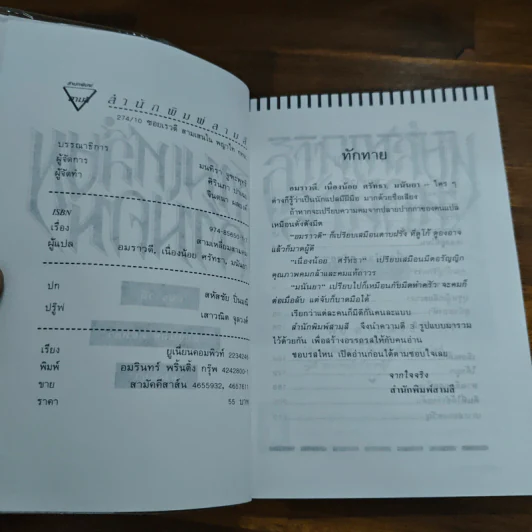 สำนักพิมพ์สามสี
274/10 ซอยเรวดี สามเสนใน พญาไท
บรรณาธิการ
ผู้จัดการ
ผู้จัดทำ
มนทิรา
ISBN
974-85650
เรื่อง
สามเหลี่ยม
ผู้แปล
อมราวดี, เนื่องน้อย ศรัทธา, มนันยา
ปก
สหัสชัย
ปรู๊ฟ
เสาวณิต
เรียง
ยูเนี่ยนคอมพิวท์ 2234248
พิมพ์
อมรินทร์ พริ้นติ้ง กรุ๊พ 4242800-1
ขาย
สามัคคีสาส์น 4655932, 465781
ราคา
55 บาท
ทักทาย
อมราวดี, เนื่องน้อย ศรัทธา, มนันยา – ใคร ๆ
ต่างก็รู้ว่าเป็นนักแปลมีฝีมือ มากด้วยชื่อเสียง
ถ้าหากจะเปรียบความคมจากปลายปากกาของคนแปล
เหมือนดั่งคมมีด
"อมราวดี" ก็เปรียบเสมือนดาบฝรั่ง ที่ดูโก้ ดูองอาจ
แล้วก็มาดผู้ดี
"เนื่องน้อย ศรัทธา" เปรียบเสมือนมีดอรัญญิก
คุณภาพคมกล้าและคมแท้ถาวร
"มนันยา" เปรียบไปก็เหมือนกับมีดทำครัว จะคมก็
ต่อเมื่อลับ แต่จับก็บาดมือได้
เรียกว่าแต่ละคนก็มีดีกันคนละแบบ
สำนักพิมพ์สามสี จึงนำความดี 3 รูปแบบมารวม
ไว้ด้วยกัน เพื่อสร้างอรรถรสให้กับคนอ่าน
ชอบรสไหน เปิดอ่านก่อนได้ตามชอบใจเลย
จากใจจริง
สำนักพิมพ์สามสี